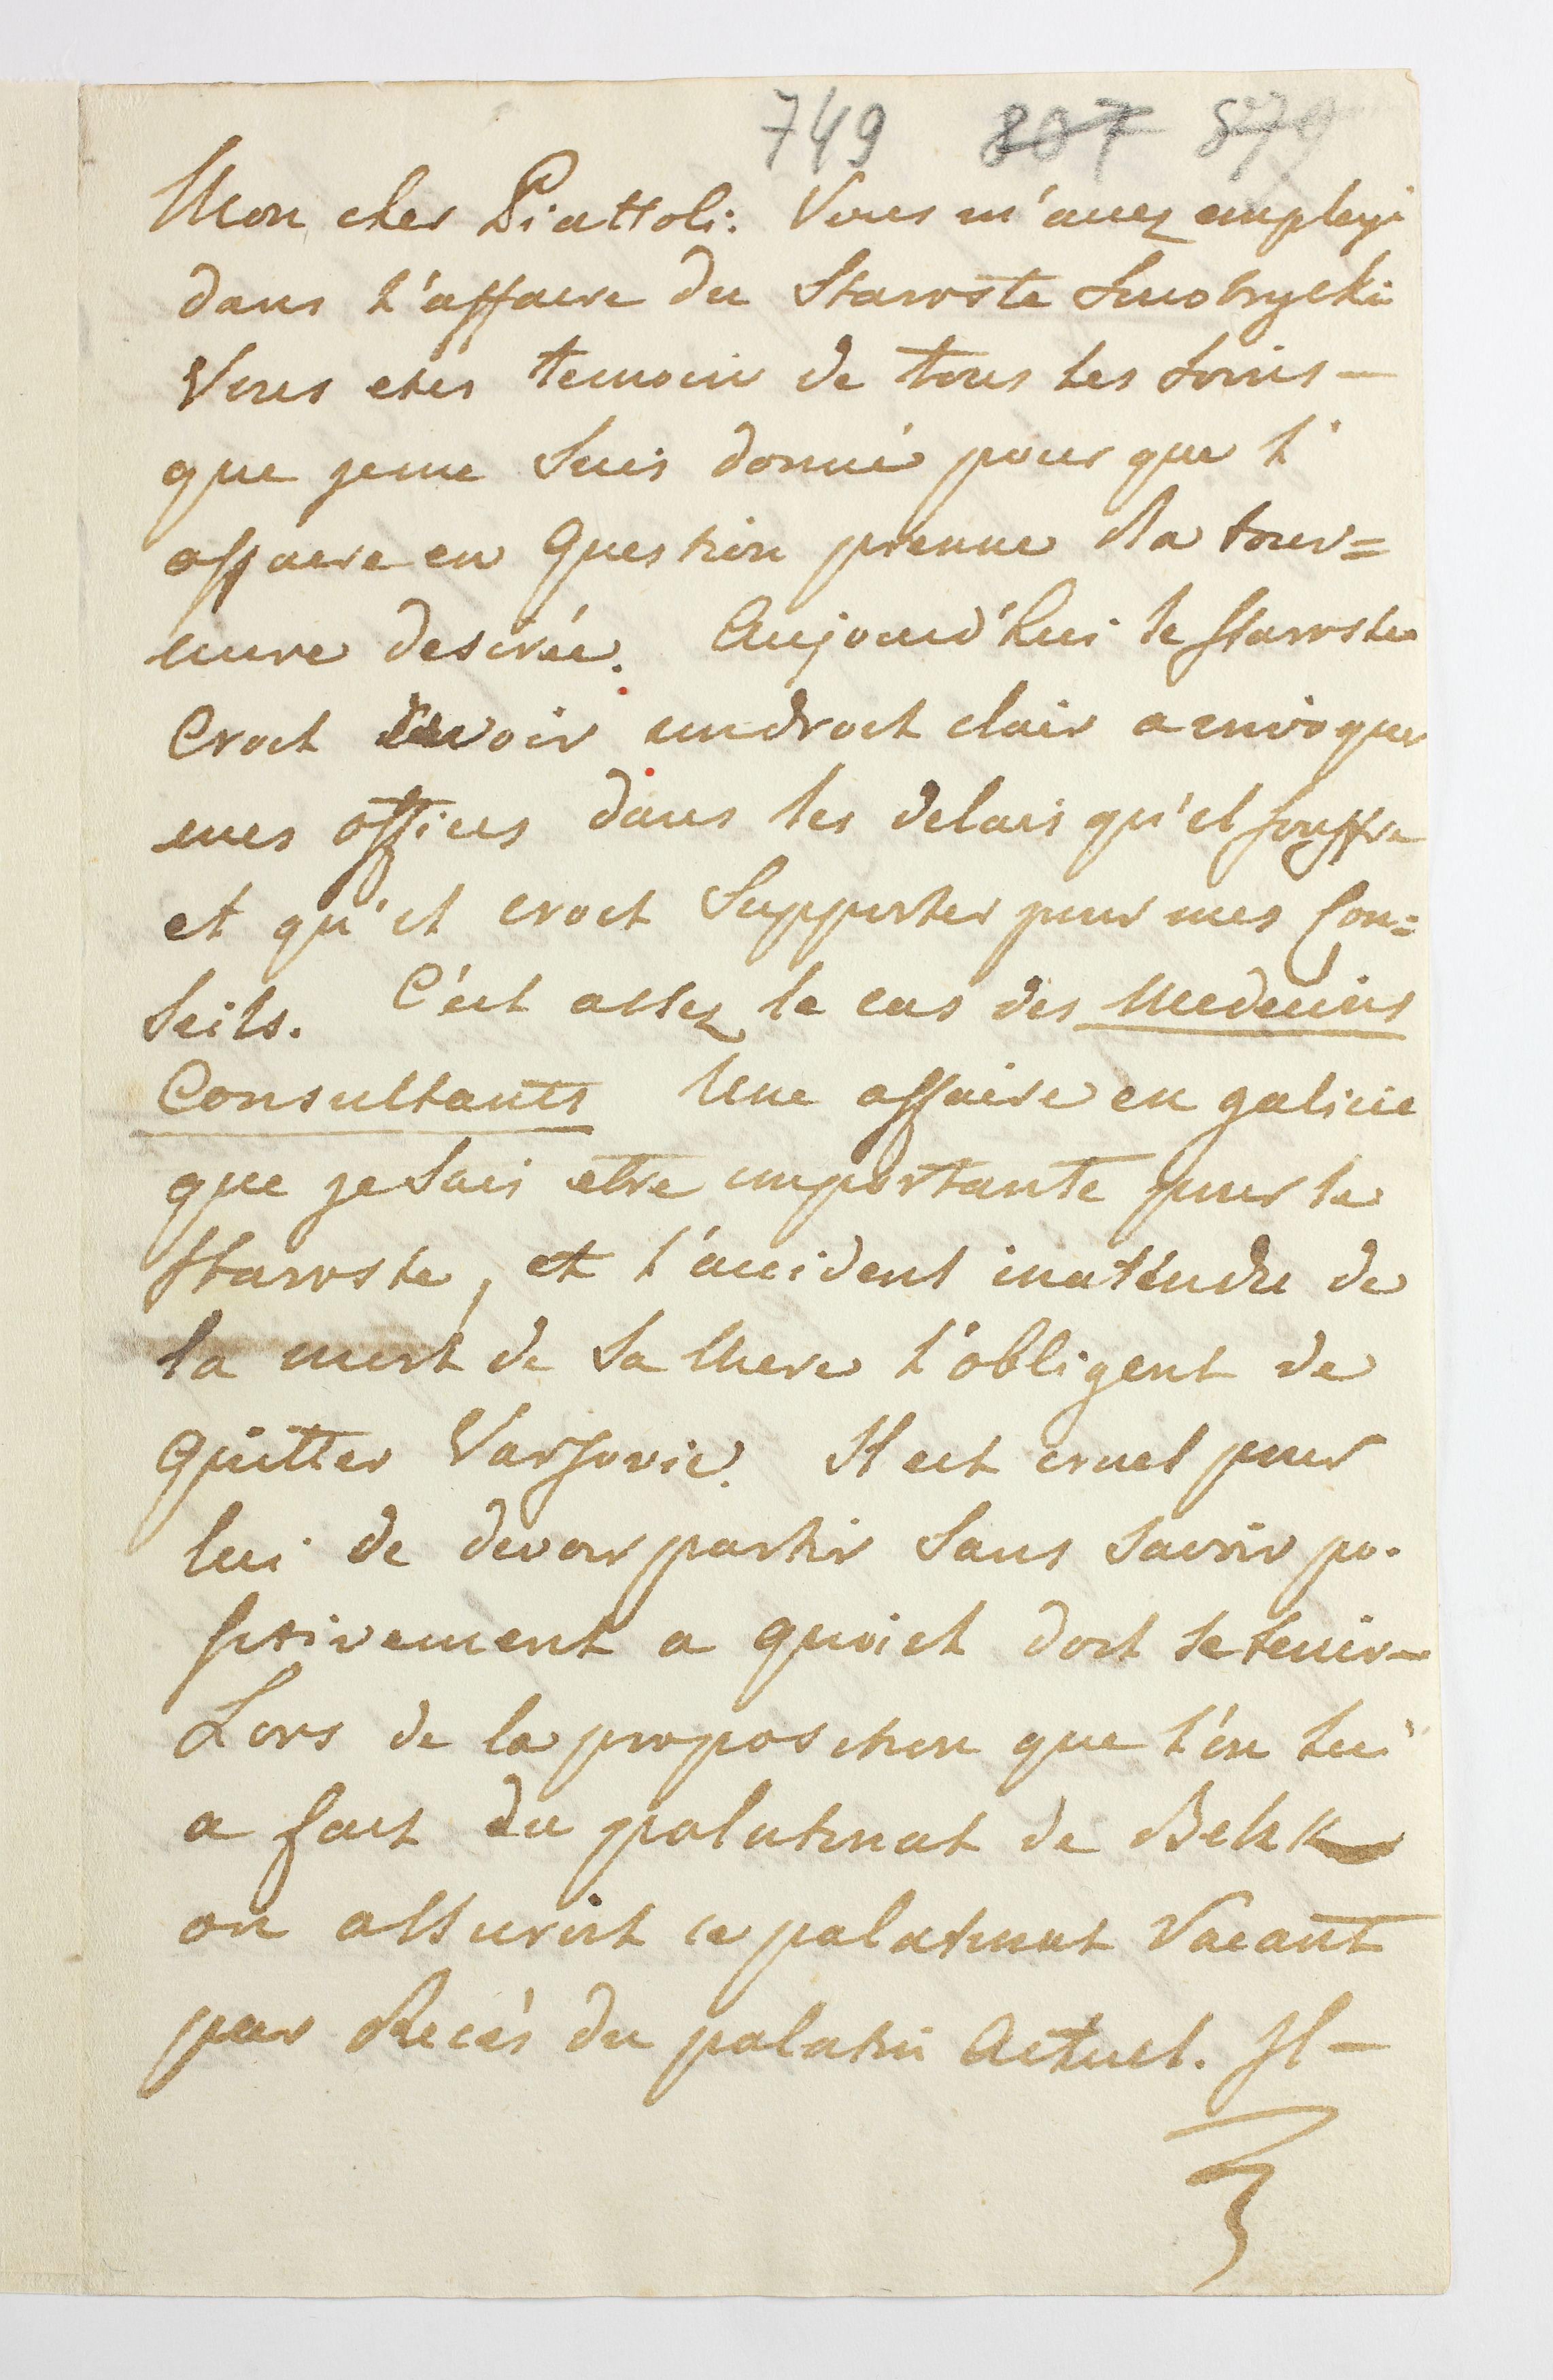 749 807 879
Mon cher Piattoli: Vous m'avez employé
dans l'affaire du Staroste Smotrycki
Vous etes temoin de tous les soins —
que je me suis donné pour que l'
affaire en question prenne la tour=
nure desirée. Aujourd'hui le Staroste
Croit avoir un droit clair a invoquer
mes offices dans les delais qu'il souffre
et qu'il croit supporter pour mes Con=
seils. C'est assez le cas des Medecins
Consultants Une affaire en galicie
que je sais etre importante pour le
Staroste, et l'accident inatendu de
la mort de sa Mere l'obligent de
quitter Varsovie. Il est cruel pour
lui de devoir partir sans savoir po-
sitivement a quoi il doit se tenir —
Lors de la proposition que l'on lui
a fait du palatinat de Belzk
on assuroit ce palatinat Vacant
par Recès du palatin Actuel. Il —